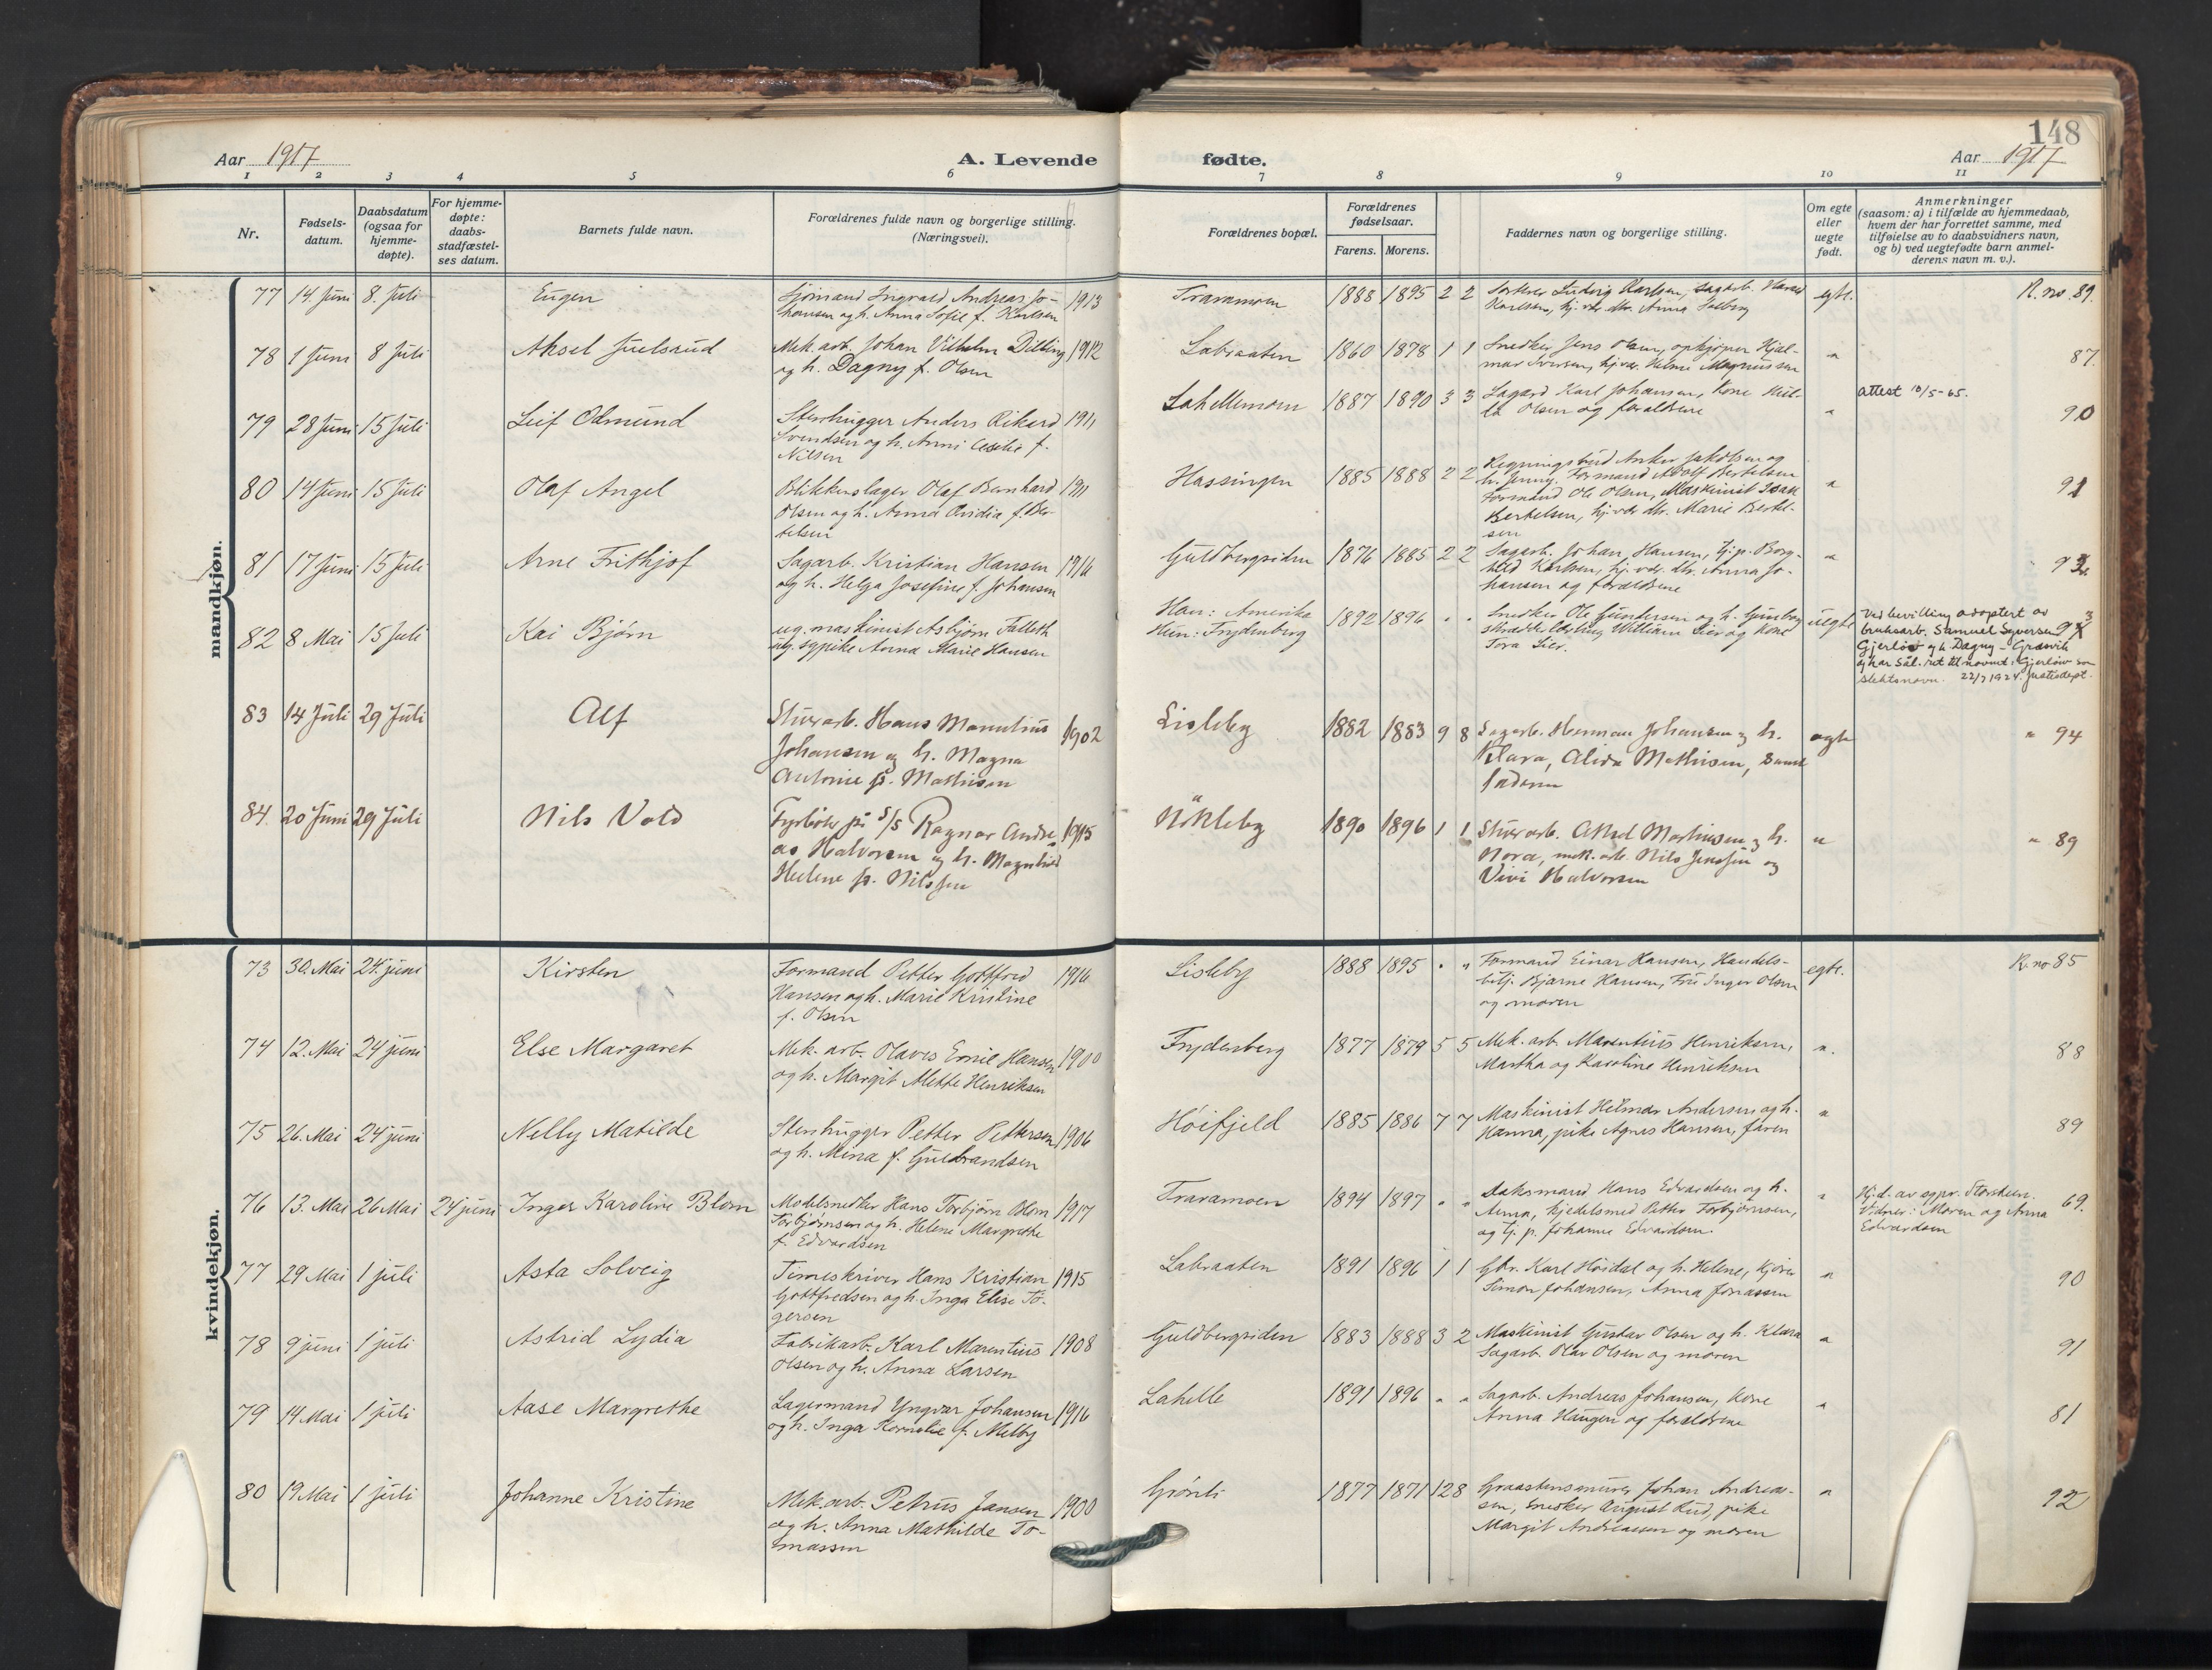 148
Aar 1917
A. Levende
fødte.
Aar 1917
1 2 3 4 5 6 7 8 9 10 11
Nr.
Fødsels-
datum.
Daabsdatum
(ogsaa for
hjemme-
døpte).
For hjemme-
døpte:
daabs-
stadfæstel-
ses datum.
Barnets fulde navn.
Forældrenes fulde navn og borgerlige stilling.
(Næringsvei).
Forældrenes bopæl.
Forældrenes
fødselsaar.
Farens. Morens.
Faddernes navn og borgerlige stilling.
Om egte
eller
uegte
født.
Anmerkninger
(saasom: a) i tilfælde av hjemmedaab,
hvem der har forrettet samme, med
tilføielse av to daabsvidners navn,
og b) ved uegtefødte barn anmel-
derens navn m. v.).
mandkjøn.
77 14. Juni 8. Juli Eugen
Sjömand Ingvald Andreas Jo- 1913
hansen og h. Anna Sofie f. Karlsen
Traramoen 1888 1895 2 2
Ludvig Karlsen, sagarb.
Karlsen, hj. vær. dtr. Anna
egte. R. no. 89.
78 1 Juni 8 Juli Aksel Juelsrud
Mek. arb. Johan Vilhelm Dilling 1912
og h. Dagny f. Olsen
Labraaten 1860 1878 1 1
Snedker Jens Olsen, opkjøper Hjal-
mar Iversen, hj. vær. Helene Magnussen
" 87.
79 28 Juni 15 Juli Leif Odmund
Stenhugger Anders Rikard 1911
Svendsen og h. Anni Cecelie f.
Nilsen
Lahellemoen 1887 1890 3 3
Sagarb Karl Johansen, Kone Hul-
da Olsen og forældrene
" attest 10/5-65. 90
80 14 Juni 15 Juli Olaf Angel
Blikkenslager Olaf Bernhard 1911
Olsen og h. Anna Ovidia f. Ber-
telsen
Hassingen 1885 1888 2 2
Regningsbud Anker Jakobsen og
h. Jenny. Formand Adolf Bertelsen
Formand Ole Olsen, Maskinist Isak
Bertelsen, hj. vær dtr. Marie Bertel-
sen
" 91
81 17 Juni 15 Juli Arne Frithjof
Sagarb. Kristian Hansen 1916
og h. Helga Josefine f. Johansen
Guldbergsiden 1876 1885 2 2
Sagarb. Johan Hansen, tj. p. Borg-
hild Karlsen, hj. vær. dtr. Anna Jo-
hansen og forældrene
" 92.
82 8 Mai 15 Juli Kai Bjørn
ug. maskinist Asbjørn Falleth
ug. sypike Anna Marie Hansen
Han: Amerika
Hun: Frydenberg
1892 1896 " "
Snedker Ole Gundersen og h. Gunborg
skrædderlærling William Lier og Kone
Tora Lier.
uegte
Ved bevilling adoptert av
bruksarb. Samuel Syversen 93
Gjerløv og h. Dagny - Græsvik
og har sål. ret til navnet: Gjerløw som
slektsnavn. 22/7 1924. Justisdept.
83 14 Juli 29 Juli Alf
Stuerarb. Hans Marentius 1902
Johansen og h. Magna
Antonie f. Mathisen
Lisleby 1882 1883 9 8
Sagarb. Herman Johansen og h.
Klara, Alida Mathisen, samt
faderen
egte " 94
84. 20 Juni 29 Juli Nils Vold
Fyrbøter på S/S Ragnar Andre- 1915
as Halvorsen og h. Magnhild
Helene f. Nilssen
Nökleby 1890 1896 1 1
Stuerarb. Alfred Martinsen og h.
Nora, mek. arb. Nils Jenssen og
Vivi Halvorsen
" " 89
kvindekjøn.
73 30. Mai 24. juni Kirsten
Formand Petter Gottfred 1916
Hansen og h. Marie Kristine
f. Olsen
Lisleby 1888 1895 " "
Formand Einar Hansen, Handels-
betj. Bjarne Hansen, Fru Inger Olsen
og moren
egte. R. no 85
74 12. Mai 24 juni Else Margaret
Mek. arb. Olaves Emil Hansen 1900
og h. Margit Mette Henriksen
Frydenberg 1877 1879 5 5
Mek. arb. Marentius Henriksen,
Martha og Karoline Henriksen
" 88
75 26. Mai 24 juni Nelly Matilde
Stenhugger Petter Pettersen 1906
og h. Mina f. Guldbrandsen
Höifjeld 1885 1886 7 7
Maskinist Helmer Andersen og h.
Hanna, pike Agnes Hansen, faren
" 89
76 13. Mai 26 Mai 24 juni Inger Karoline Blom
Modelsnedker Hans Torbjørn Blom 1917
Torbjørnsen og h. Helene Margrethe
f. Edvardsen
Traramoen 1894 1897 " "
Baksmand Hans Edvardsen og h.
Anna, Kjedelsmed Petter Torbjørnsen,
og tj. p. Johanne Edvardsen.
" Hj. d. av sgpr. Storsteen.
Vidner: Moren og Anna
Edvardsen
69.
77 29 Mai 1 juli Asta Solveig
Timeskriver Hans Kristian 1915
Gottfredsen og h. Inga Elise To-
gersen
Labraaten 1891 1896 1 1
Gbr. Karl Höidal og h. Helene, kjører
Simon Johansen, Anna Jonassen
" 90
78 9 juni 1 juli Astrid Lydia
Fabrikarb. Karl Marentius 1908
Olsen og h. Anna Larsen
Guldbergsiden 1883 1888 3 2
Maskinist Gustav Olsen og h. Klara
Sagarb. Olav Olsen og moren
" 91
79 14 Mai 1 juli Aase Margrethe
Lagermand Yngvar Johansen 1916
og h. Inga Kornelie f. Melby
Lahelle 1891 1896 " "
Sagarb. Andreas Johansen, Kone
Anna Haugen og forældrene
" 81
80 19 Mai 1 juli Johanne Kristine
Mek. arb. Petrus Jansen 1900
og h. Anna Mathilde To-
massen
Grönli 1877 1871 12 8
Graastensmurer Johan Andreas-
sen, snedker August Rud, pike
Margit Andreassen og moren
" 92